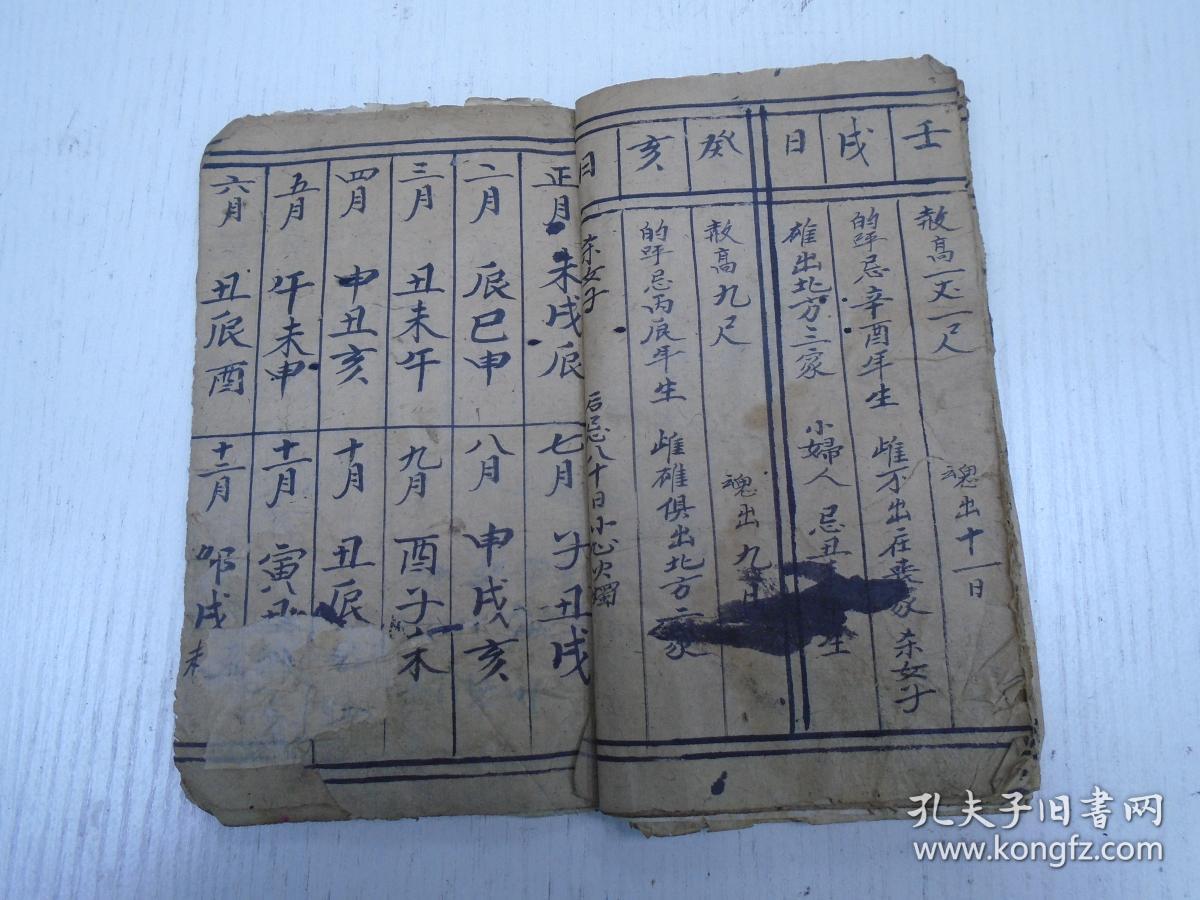 壬戌日
煞高一丈一尺
魂出十一日
的呼忌辛酉年生
雌不出在喪家
杀女子
雄出北方三家
小婦人
忌丑
生
癸亥日
煞高九尺
魂出九日
的呼忌丙辰年生
雌雄俱出北方二家
杀女子
后忌八十日小心火燭
正月 未戌辰
二月 辰巳申
三月 丑未午
四月 申丑亥
五月 午未申
六月 丑辰酉
七月 子丑戌
八月 申戌亥
九月 酉子未
十月 丑辰
十一月 寅
十二月 卯戌未
孔夫子旧书网
www.kongfz.com